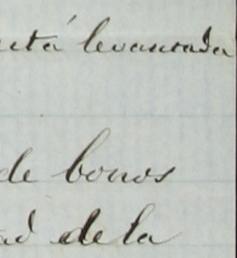 levantada
de bonos
de la